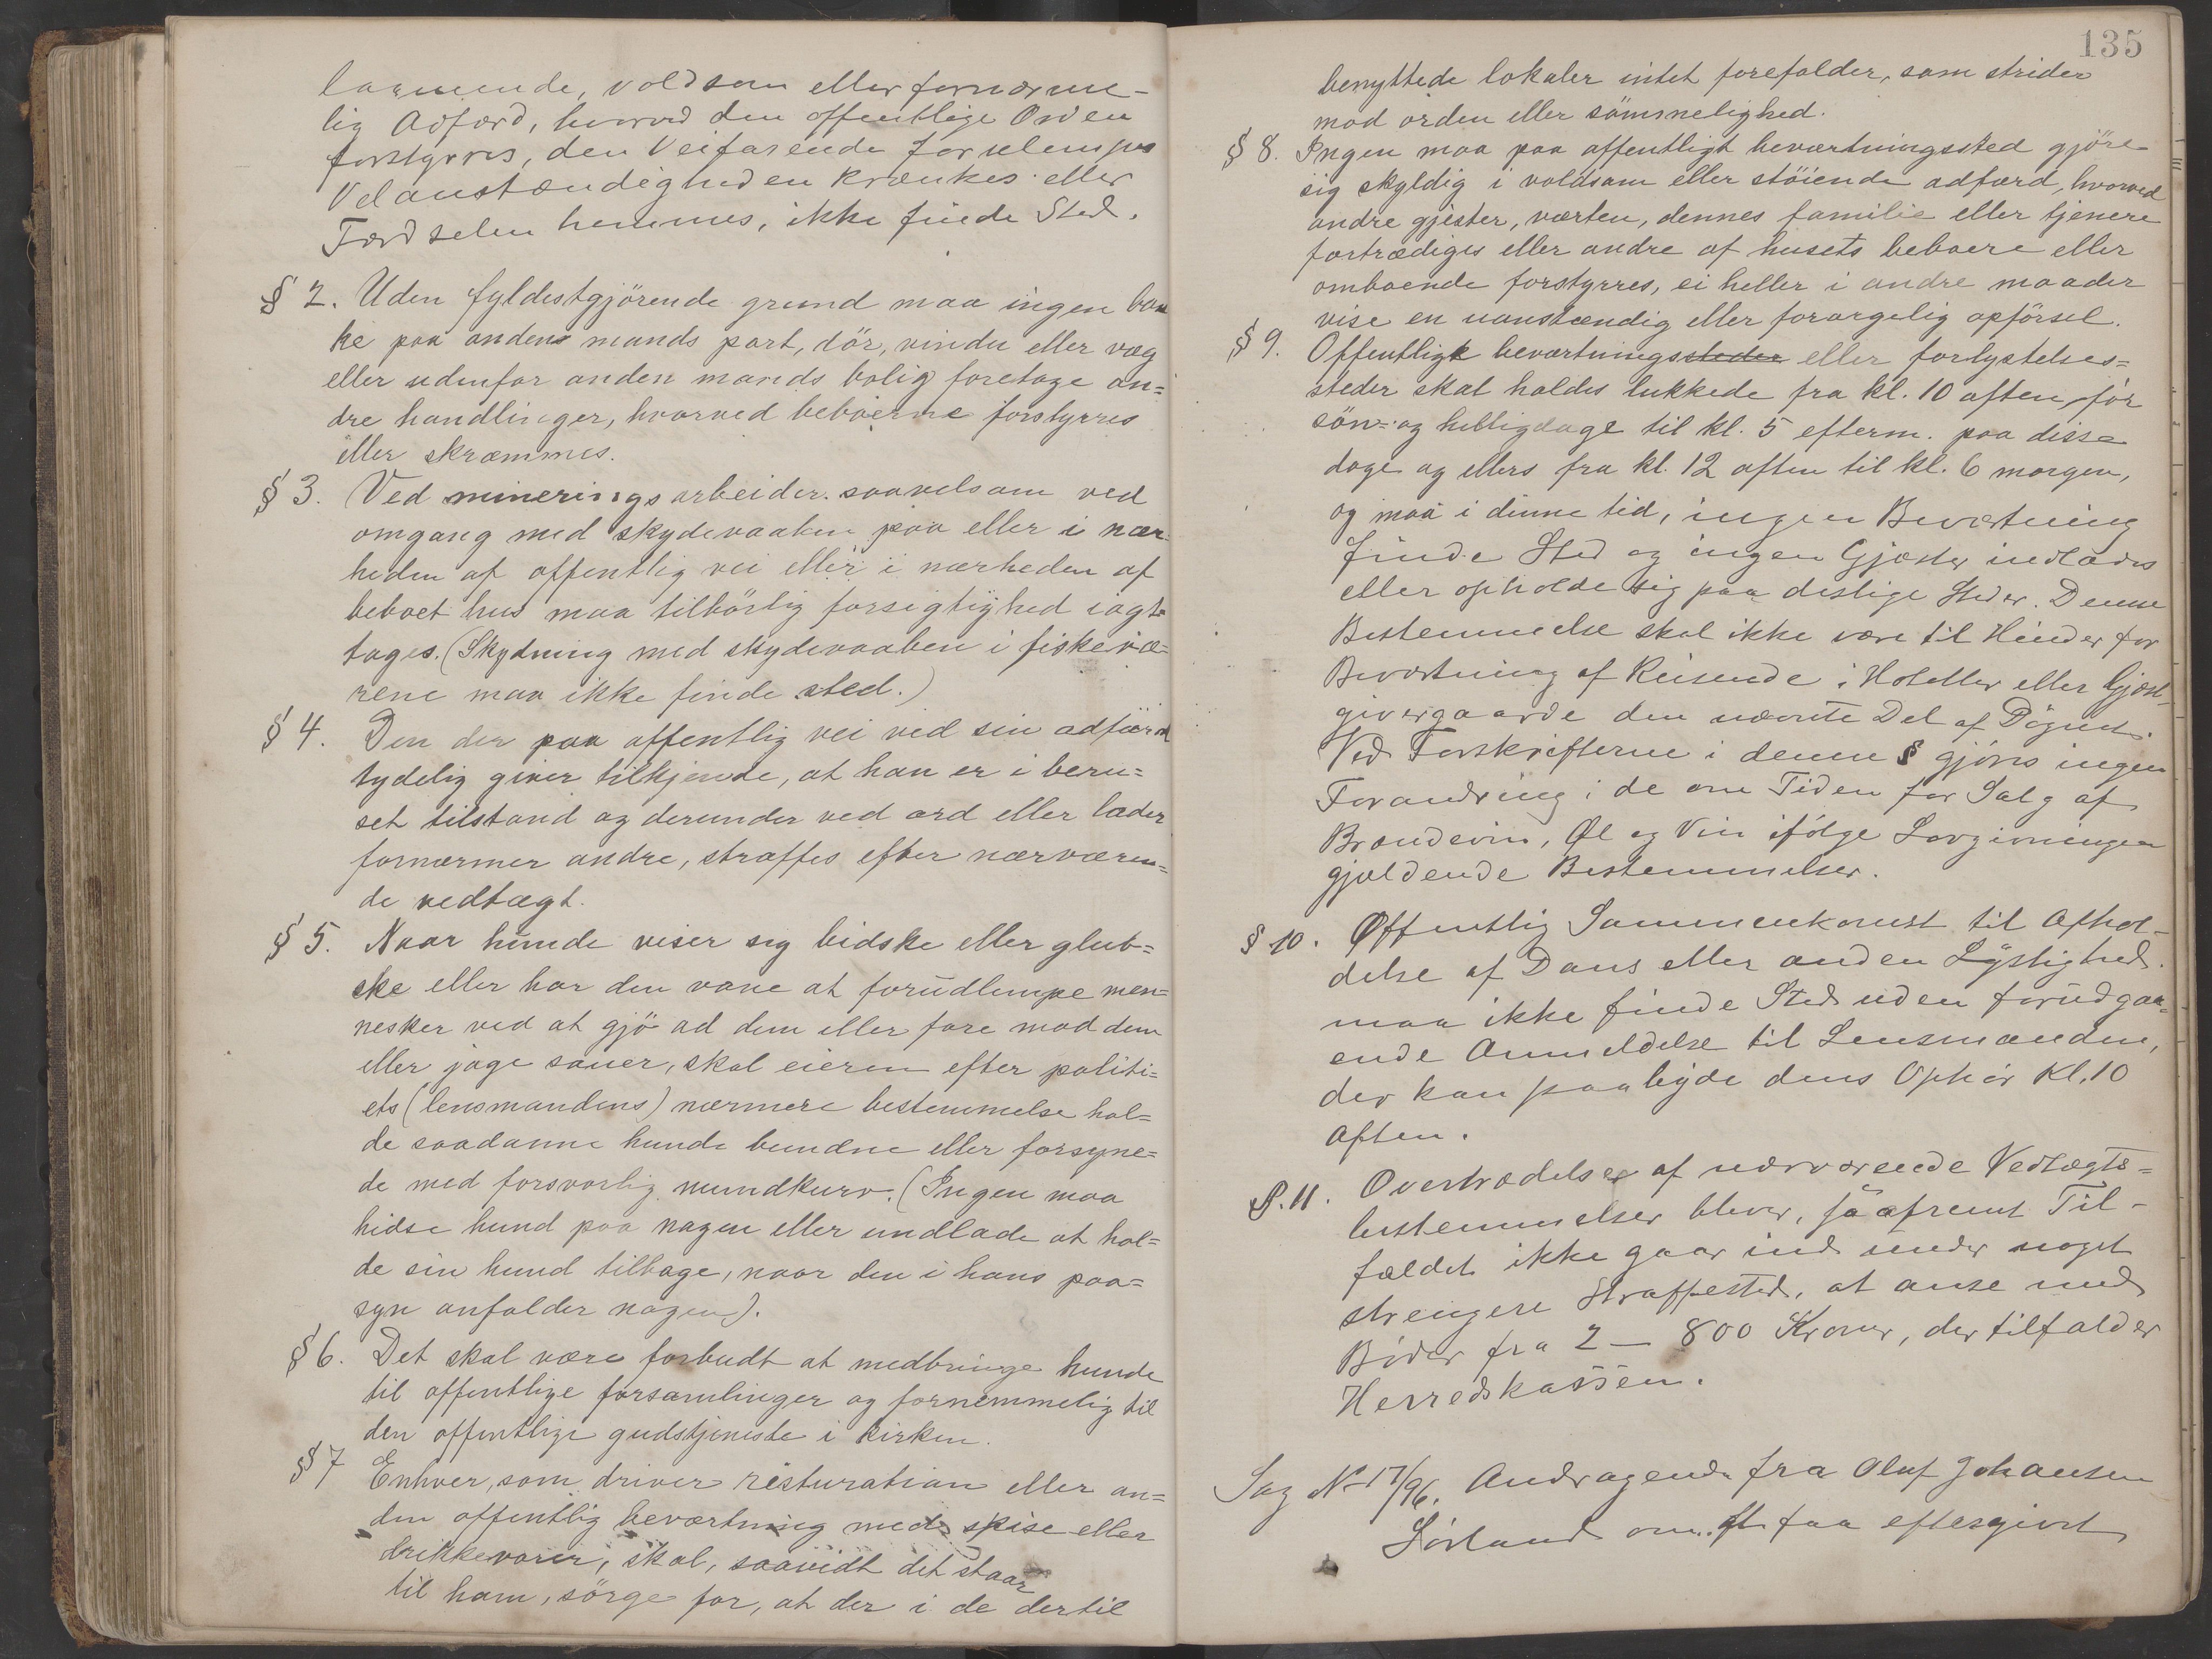 larmende, voldsom eller fornærme-
lig Adfærd, hvorved den offentlige Orden
forstyrres, den Veifarende forulempes
Velanstændigheden krænkes eller
Færdselen hemmes, ikke finde Sted.
§ 2. Uden fyldestgjörende grund maa ingen ban
ke paa anden mands port, dör, vindu eller væg
eller udenfor anden mands bolig foretage an=
dre handlinger, hvorved beboerne forstyrres
eller skræmmes.
§ 3. Ved mineringsarbeider saavelsom ved
omgang med skydevaaben paa eller i nær
heden af offentlig vei eller i nærheden af
beboet hus maa tilbörlig forsigtighed iagt=
tages. (Skydning med skydevaaben i fiskevæ=
rene maa ikke finde sted.)
§ 4. Den der paa offentlig vei ved sin adfærd
tydelig giver tilkjende, at han er i beru=
set tilstand og derunder ved ord eller lader
fornærmer andre, straffes efter nærværen=
de vedtægt.
§ 5. Naar hunde viser sig bidske eller glub=
ske eller har den vane at forudlempe men=
nesker ved at gjö ad dem eller fare mod dem
eller jage sauer, skal eieren efter politi=
ets (lensmandens) nærmere bestemmelse hol=
de saadanne hunde bundne eller forsyne=
de med forsvarlig mundkurv. (Ingen maa
hidse hund paa nogen eller undlade at hol=
de sin hund tilbage, naar den i hans paa=
syn anfalder nogen).
§ 6. Det skal være forbudt at medbringe hunde
til offentlige forsamlinger og fornemmelig til
den offentlige gudstjeneste i kirken.
§ 7 Enhver, som driver resturation eller an=
den offentlig beværtning med spise eller
drikkevarer, skal, saavidt det staar
til ham, sörge for, at der i de dertil
135
benyttede lokaler intet forefalder, som strider
mod orden eller sömmelighed.
§ 8. Ingen maa paa offentligt beværtningssted gjöre
sig skyldig i voldsom eller stöiende adfærd, hvorved
andre gjester, værten, dennes familie eller tjenere
fortrædiges eller andre af husets beboere eller
omboende forstyrres, ei heller i andre maader
vise en uanstændig eller forargelig opförsel.
§ 9. Offentlige beværtningssteder eller forlystelses=
steder skal holdes lukkede fra kl. 10 aften för
sön= og helligdage til kl. 5 efterm. paa disse
dage og ellers fra kl. 12 aften til kl. 6 morgen,
og maa i denne tid, ingen Beværtning
finde Sted og ingen Gjæster indlades
eller opholde sig paa deslige Steder. Denne
Bestemmelse skal ikke være til Hinder for
Beværtning af Reisende i Hoteller eller Gjæst-
givergaarde den nævnte Del af Døgnet.
Ved Forskrifterne i denne § gjöres ingen
Forandring i de om Tiden for Salg af
Brændevin, Øl og Vin ifölge Lovgivningen
gjældende Bestemmelser.
§ 10. Offentlig Sammenkomst til Afhol-
delse af Dans eller anden Lystighed
maa ikke finde Sted uden forudgaa-
ende Anmeldelse til Lensmanden,
der kan paabyde dens Ophör Kl. 10
Aften.
§. 11. Overtrædelse af nærværende Vedtægts=
bestemmelser bliver, saafremt Til-
fældet ikke gaar ind under noget
strengere Straffested, at anse med
Böder fra 2 — 800 Kroner, der tilfalder
Herredskassen.
Sag N 17/96. Andragende fra Oluf Johansen
Sörland om at faa eftergivet